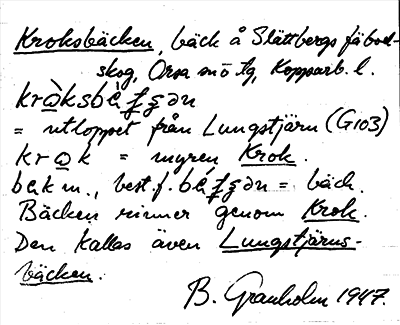 Kroksbäcken, bäck å Slättbergs fäbod-
skog, Orsa snö tg, Kopparb. l.
krὼksbe̩ʄʂən
= utloppet från Lungstjärn (G103)
krωk = myren Krok.
bek m., best. f. béʄʂən = bäck.
Bäcken rinner genom Krok.
Den kallas även Lungstjärns-
bäcken.
B. Granholm 1947.